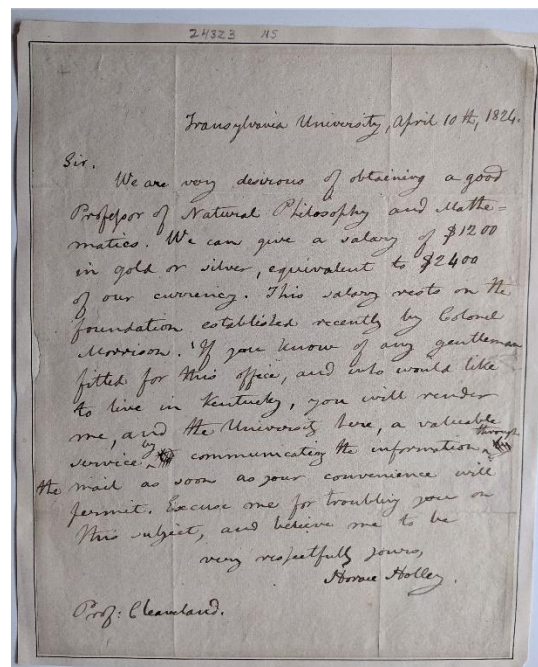 24323 NS
Transylvania University, April 10th, 1824.
Sir.
We are very desirous of obtaining a good
Professor of Natural Philosophy and Mathe=
matics. We can give a salary of $1200
in gold or silver, equivalent to $2400
of our currency. This salary rests on the
foundation established recently by Colonel
Morrison. If you know of any gentleman
fitted for this office, and who would like
to live in Kentucky, you will render
me, and the University here, a valuable
service by communicating the information through
the mail as soon as your convenience will
permit. Excuse me for troubling you on
this subject, and believe me to be
very respectfully yours,
Horace Holley.
Prof: Cleaveland.